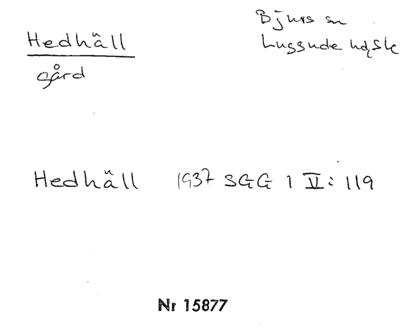 Hedhäll
gård
Bjuvs sn
Luggude hd, Sk
Hedhäll 1937 SGG 1 V: 119
Nr 15877